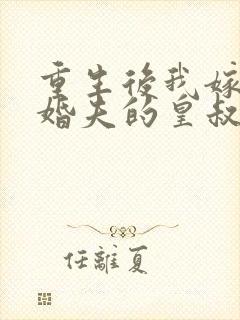 重生後我嫁
婚夫的皇叔
任離夏